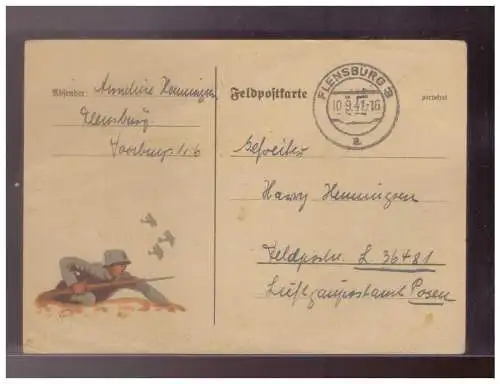 Absender: Anneliese Henningsen
Flensburg
Feldpostkarte
portofrei
FLENSBURG 3
10.9.41.-16
a
Gefreiter
Harry Henningsen
Feldpostnr. L 36481
Luftgaupostamt Posen